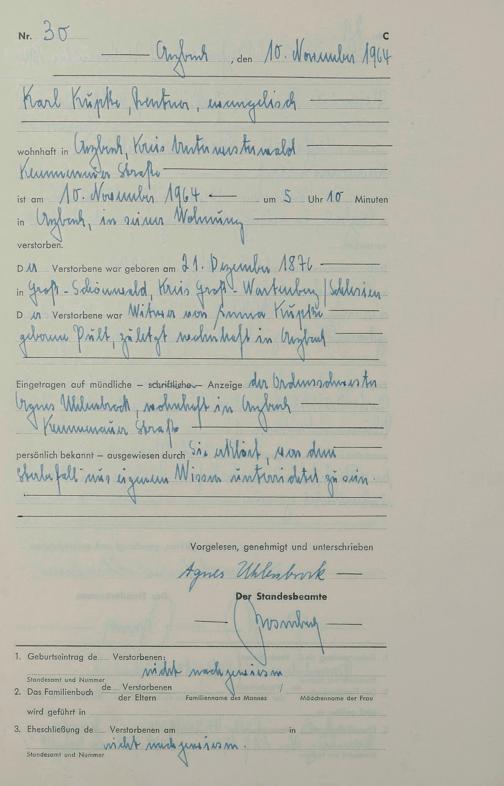 Nr. 30 C
Arzbach, den 10. November 1964
Karl Kupke, Rentner, evangelisch
wohnhaft in Arzbach, Kreis Unterwesterwald
Straße
ist am 10. November 1964 um 5 Uhr 10 Minuten
in Arzbach, in seiner Wohnung
verstorben.
Der Verstorbene war geboren am 21. Dezember 1876
in Groß-Schönwald, Kreis Groß-Wartenberg/Schlesien
Der Verstorbene war Witwer von Anna Kupke
geborene Pult, zuletzt wohnhaft in Arzbach
Eingetragen auf mündliche – schriftliche – Anzeige der Ordensschwester
Agnes Uhlenbrock, wohnhaft in Arzbach
Straße
persönlich bekannt – ausgewiesen durch Sie erklärt, von dem
Sterbefall aus eigenem Wissen unterrichtet zu sein.
Vorgelesen, genehmigt und unterschrieben
Agnes Uhlenbrock
Der Standesbeamte
1. Geburtseintrag de Verstorbenen:
nicht nachgewiesen
Standesamt und Nummer
2. Das Familienbuch de Verstorbenen
der Eltern Familienname des Mannes / Mädchenname der Frau
wird geführt in
3. Eheschließung de Verstorbenen am in
nicht nachgewiesen.
Standesamt und Nummer